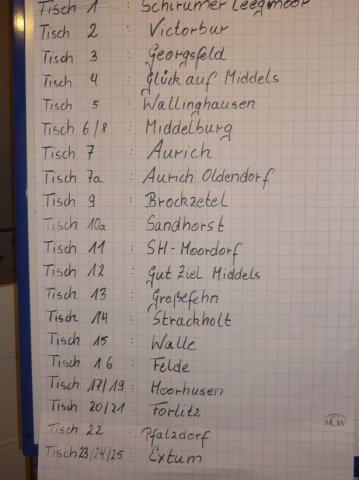 Tisch 1 : Schirumer Leegmoor
Tisch 2 : Victorbur
Tisch 3 : Georgsfeld
Tisch 4 : Glück auf Middels
Tisch 5 : Wallinghausen
Tisch 6/8 : Middelburg
Tisch 7 : Aurich
Tisch 7a : Aurich Oldendorf
Tisch 9 : Brockzetel
Tisch 10a : Sandhorst
Tisch 11 : SH-Moordorf
Tisch 12 : Gut Ziel Middels
Tisch 13 : Großefehn
Tisch 14 : Strackholt
Tisch 15 : Walle
Tisch 16 : Felde
Tisch 17/19 : Moorhusen
Tisch 20/21 : Forlitz
Tisch 22 : Pfalzdorf
Tisch 23/24/25 : Extum